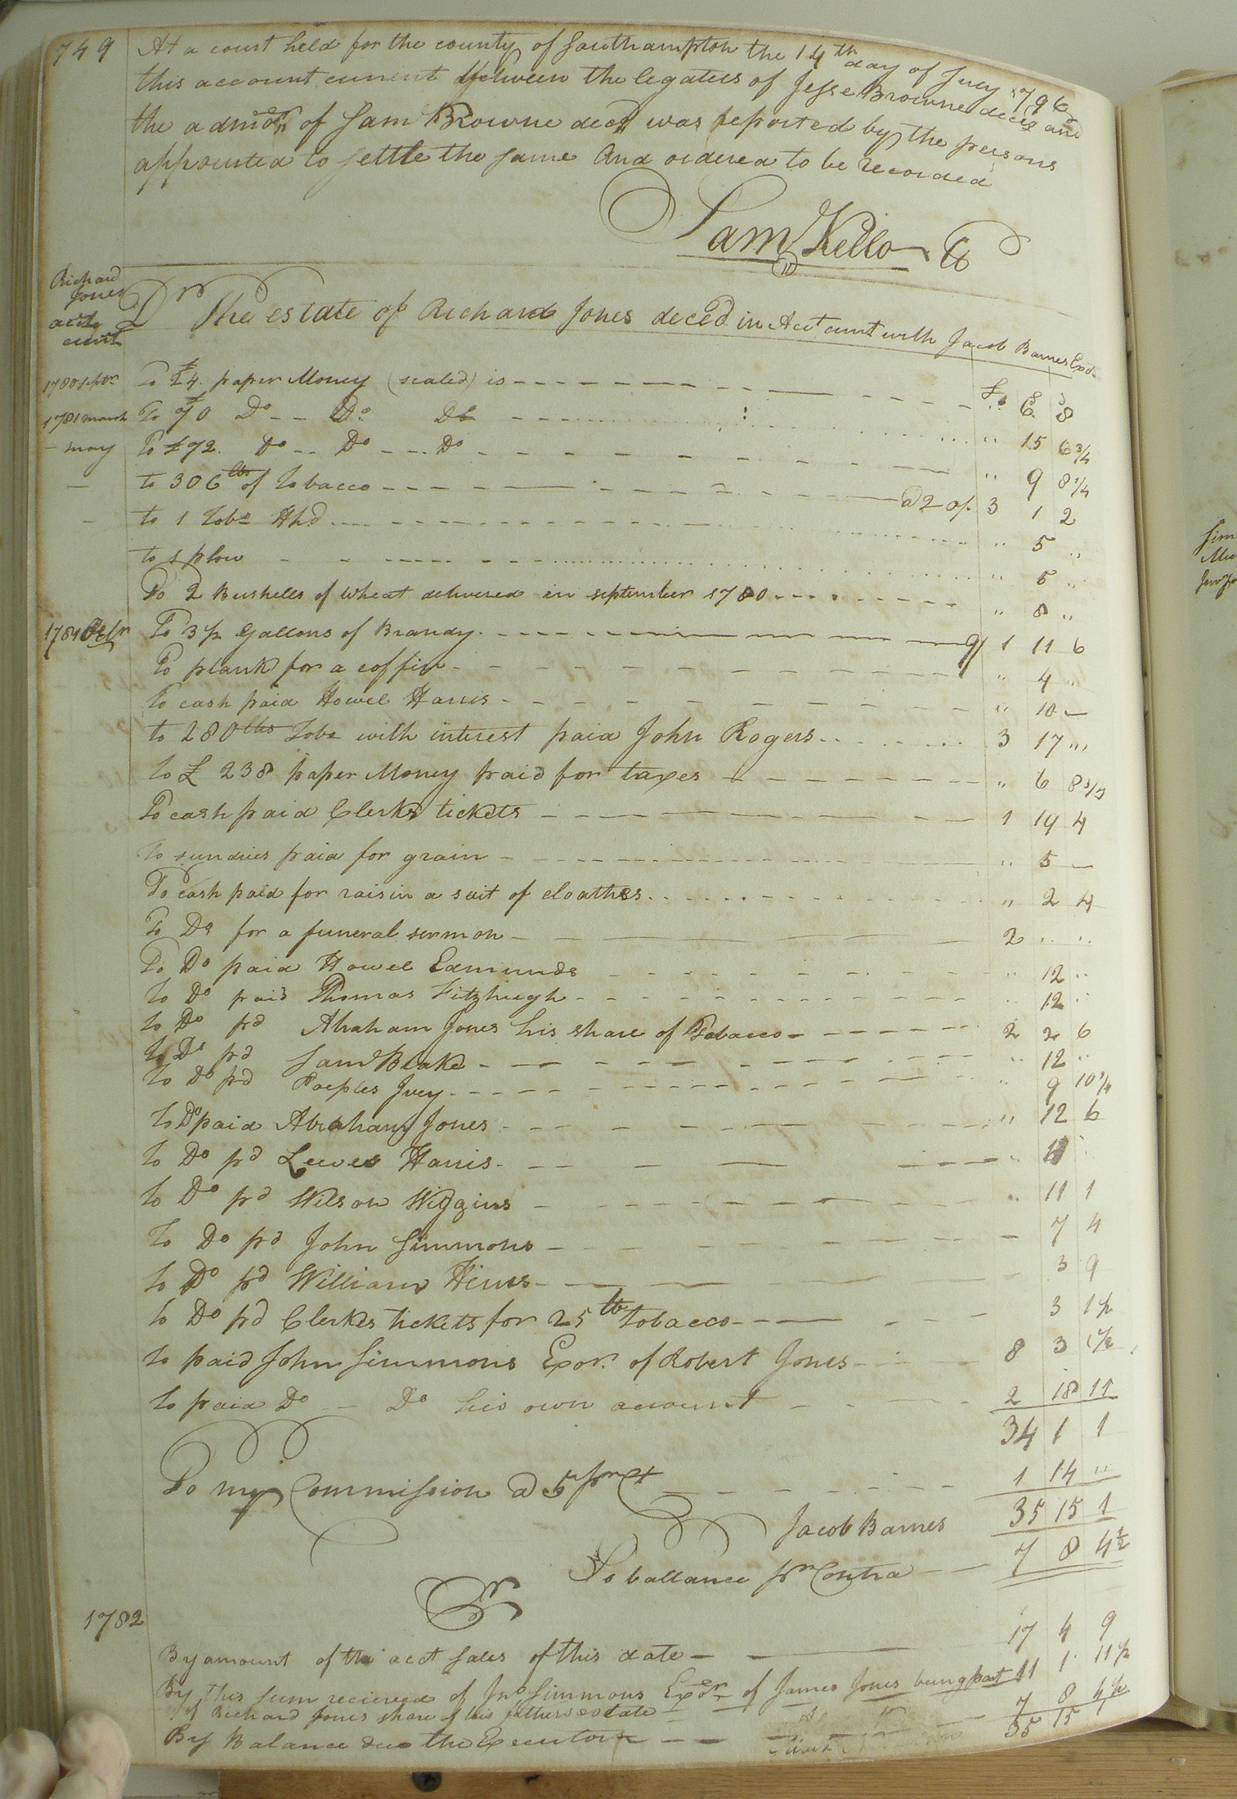 749 At a court held for the county of Southampton the 14th day of July 1796
this account current between the legatees of Jesse Browne decd and
the admor of Sam Browne decd was reported by the persons
appointed to settle the same And ordered to be recorded
Saml Kello CC
Richard
Jones
acct
curt
Dr The estate of Richard Jones deced in Account with Jacob Barnes Exor
1780 To £24. paper Money (scaled) is £ " 6 8
1781 march To £70 Do Do Do " 15 6 3/4
- may To £72. Do Do Do " 9 8 1/4
- to 306 lbs of Tobacco a 20/. 3 1 2
- to 1 Tobo Hhd " 5 "
to 1 plow " 5 "
To 2 Bushells of Wheat delivered in september 1780 " 8 "
1781 To 3 1/2 Gallons of Brandy 9/ 1 11 6
To plank for a coffin " 4 "
To cash paid Howel Harris " 10 -
to 280 lbs Tobo with interest paid John Rogers 3 17 "
to £ 238 paper Money paid for taxes " 6 8 3/4
To cash paid Clerks tickets 1 19 4
To sundries paid for grain " 5 -
To cash paid for raisin a suit of cloathes " 2 4
To Do for a funeral sermon 2 " "
To Do paid Howel Edmunds " 12 "
to Do paid Thomas Fitzhugh " 12 "
to Do pd Abraham Jones his share of Tobacco 2 2 6
to Do pd Saml Blake " 12 "
to Do pd Peeples Ivey " 9 10 1/4
to Do paid Abraham Jones " 12 6
to Do pd Lewes Harris "
to Do pd Wilson Wiggins " 11 1
To Do pd John Simmons 7 4
to Do pd William Hines 3 9
to Do pd Clerks tickets for 25 lb tobacco 3 1 1/2
to paid John Simmons Exor. of Robert Jones 8 3 1 1/2
to paid Do Do his own account 2 18 11
34 1 1
To my Commission a 5 pr Ct 1 14 "
Jacob Barnes 35 15 1
To ballance pr Contra 7 8 4 1/2
Cr
1782
By amount of the acct sales of this date 17 4 9
By this sum recieved of Jno Simmons Exor of James Jones being part 11 1 11 1/2
of Richard Jones share of his fathers estate
By Balance due the Executor 7 8 4 1/2
35 15